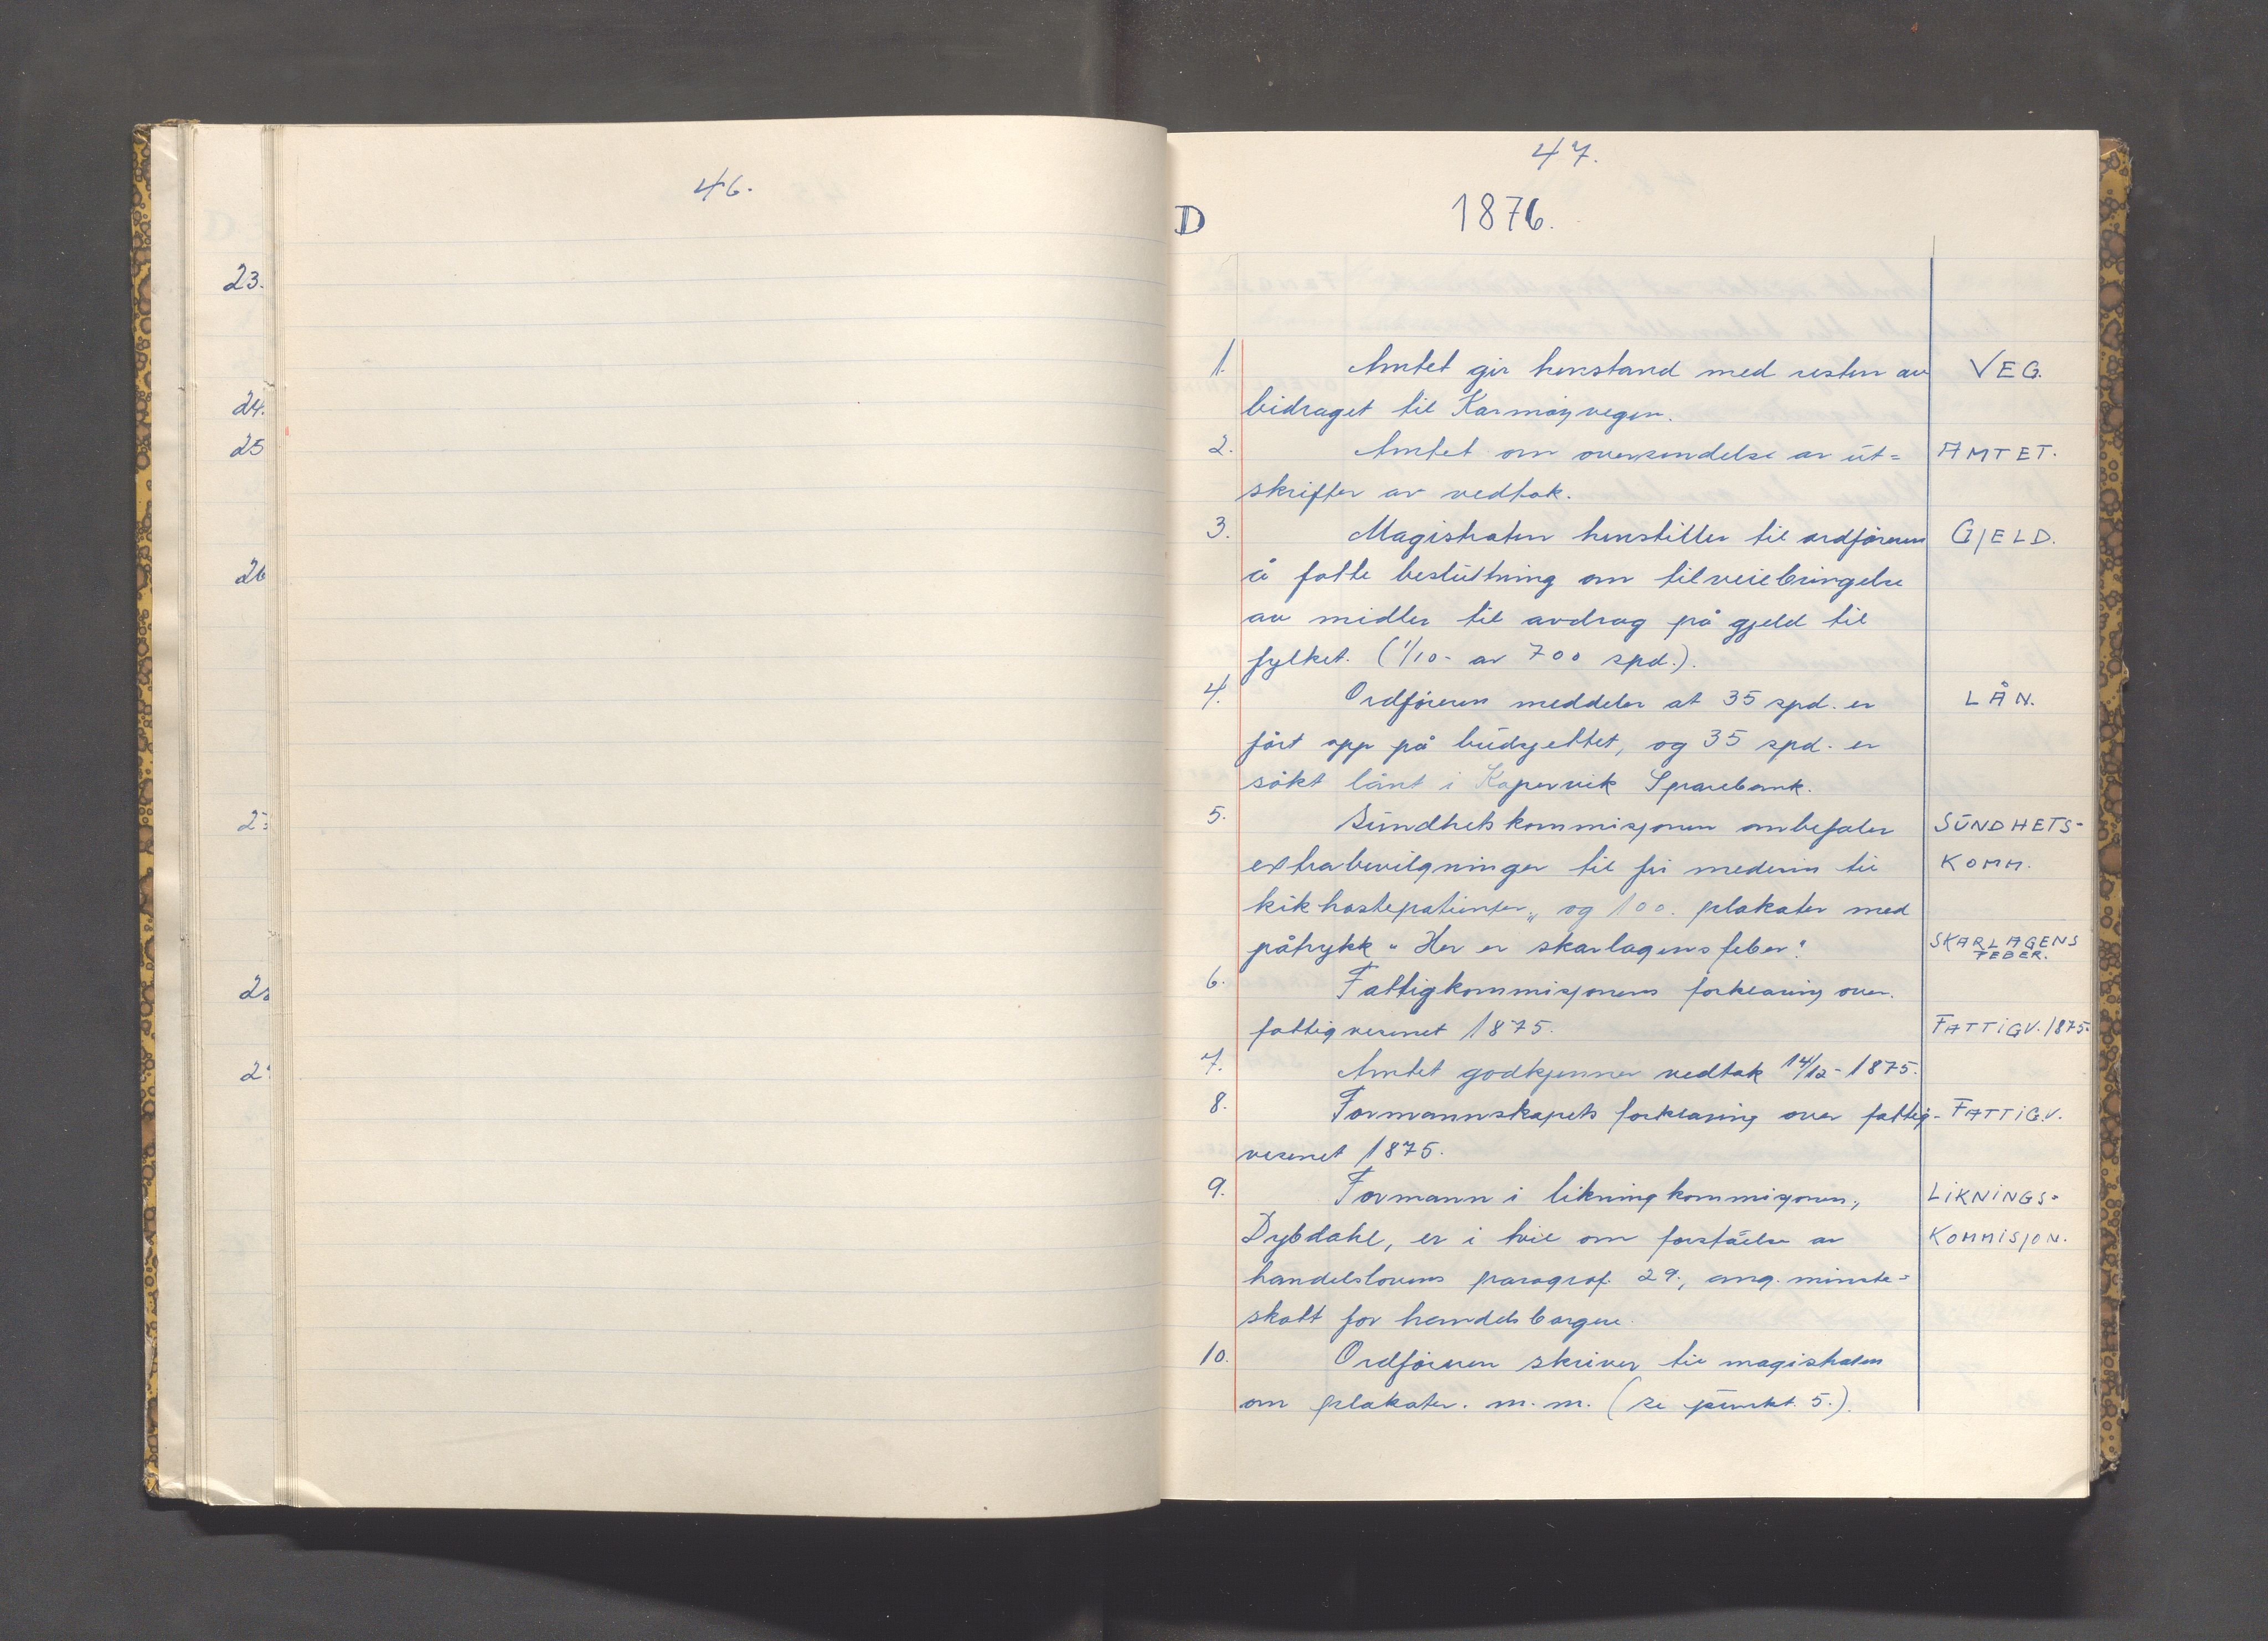 46.
23.
24.
25
26
47.
D
1876.
1. Amtet gir henstand med resten av VEG.
bidraget til Karmøyvegen.
2. Amtet om oversendelse av ut= AMTET.
skrifter av vedtak.
3. Magistraten henstiller til ordføreren GJELD.
å fatte beslutning om tilveiebringelse
av midler til avdrag på gjeld til
fylket. (1/10- av 700 spd.).
4. Ordføreren meddeler at 35 spd. er LÅN.
ført opp på budsjettet, og 35 spd. er
søkt lånt i Kopervik Sparebank.
5. Sundhetskommisjonen anbefaler SUNDHETS-
extrabevilgninger til fri medesin til KOMM.
kikhostepatienter,, og 100. plakater med
påtrykk "Her er skarlagensfeber" SKARLAGENS
FEBER.
6. Fattigkommisjonens forklaring over.
fattigvesenet 1875. FATTIGV. 1875.
7. Amtet godkjenner vedtak 14/12-1875.
8. Formannskapets forklaring over fattig- FATTIGV.
vesenet 1875.
9. Formann i likningkommisjonen, LIKNINGS=
Dybdahl, er i tvil om forståelse av KOMMISJON.
handelslovens paragraf. 29., ang. minste=
skatt for handelsborgere.
10. Ordføreren skriver til magistraten
om plakater. m.m. (se punkt. 5.).